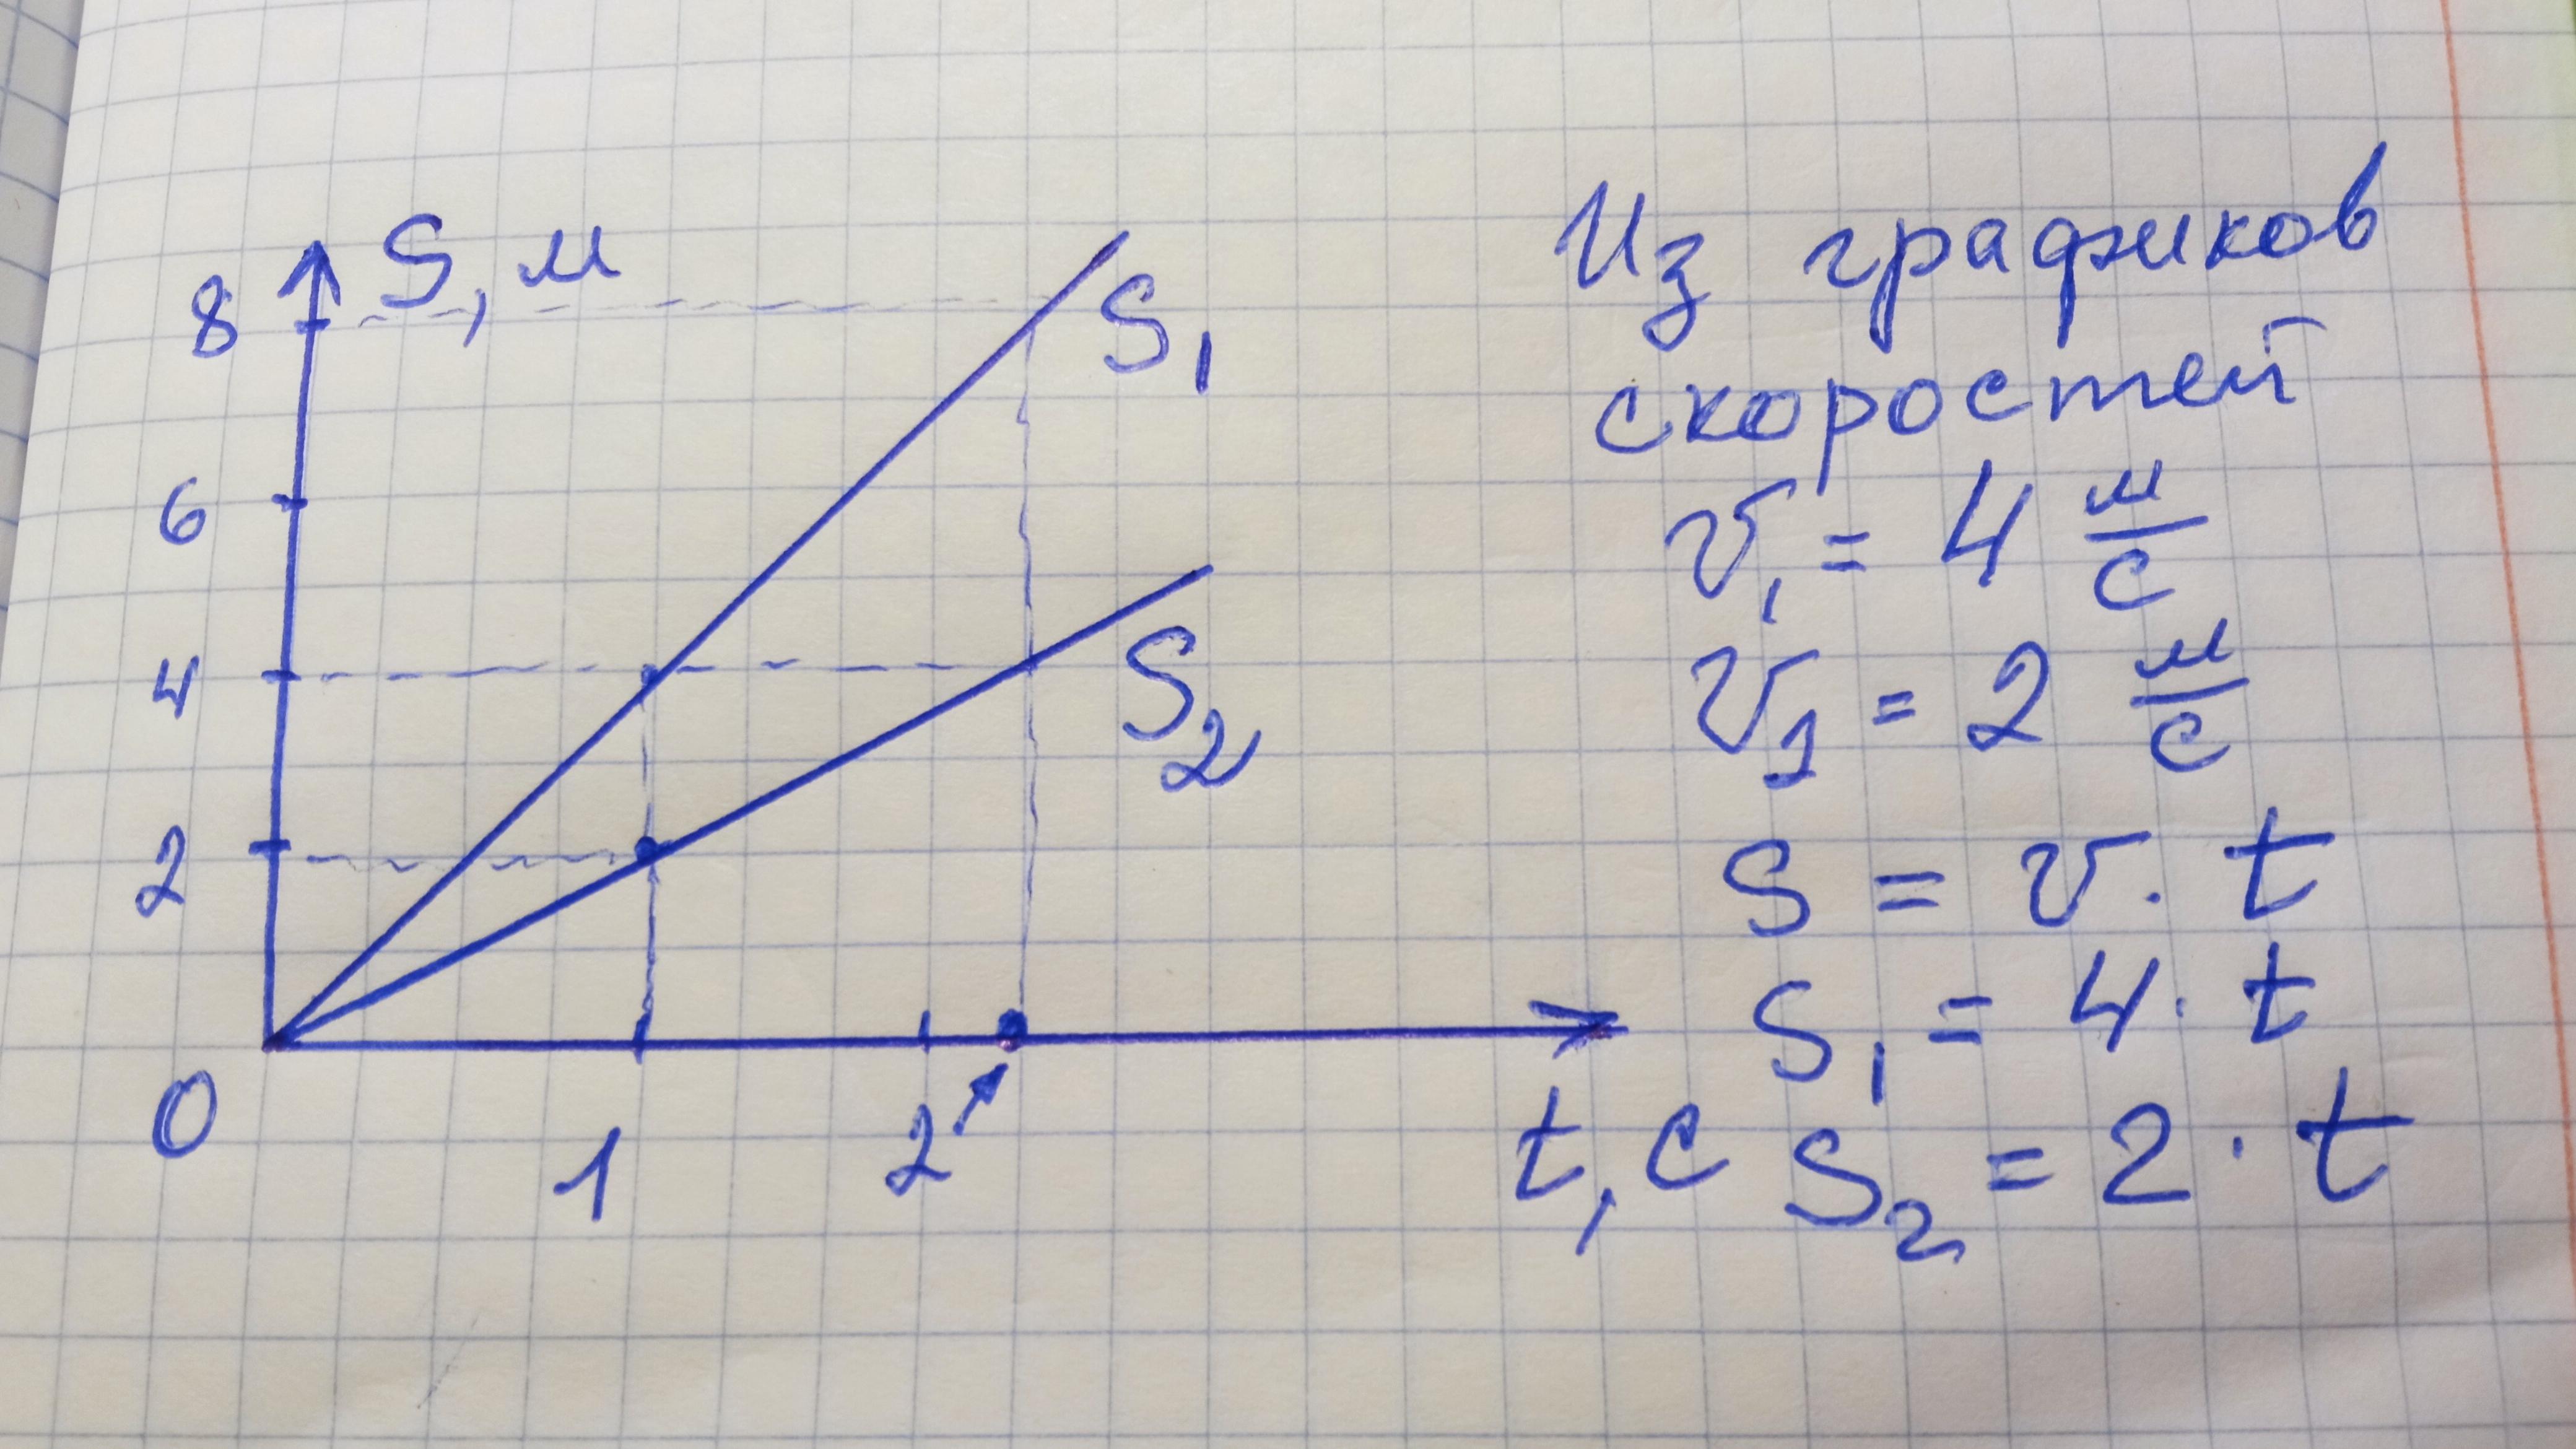 S, м
8
6
4
2
0
1
2
t, с
S₁
S₂
Из графиков
скоростей
v₁ = 4 м/с
v₂ = 2 м/с
S = v · t
S₁ = 4 · t
S₂ = 2 · t